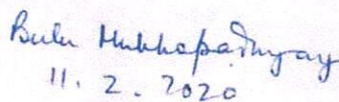 Bulu Mukhopadhyay
11.2.2020